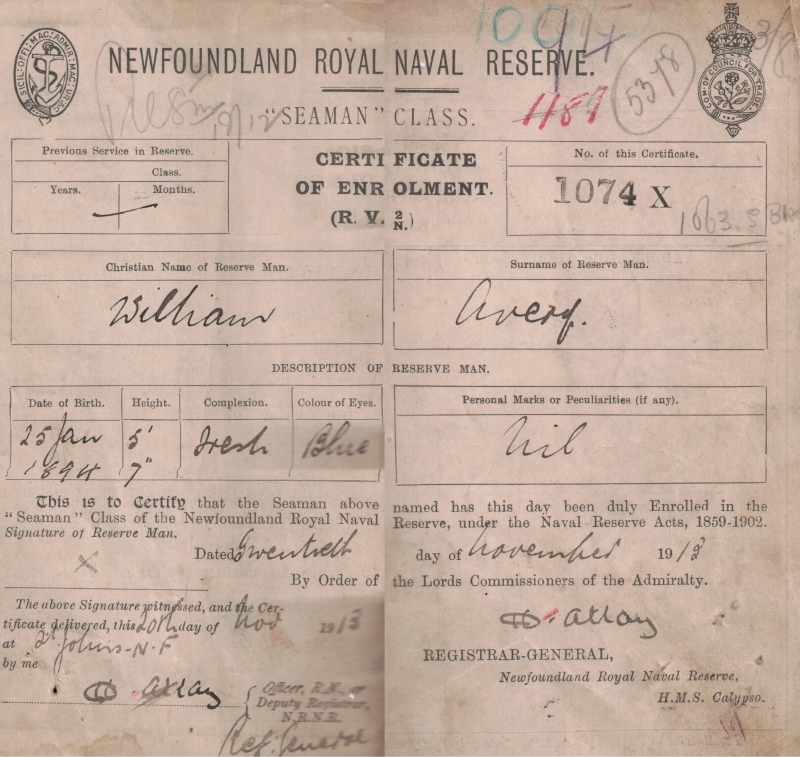 NEWFOUNDLAND ROYAL NAVAL RESERVE.
"SEAMAN" CLASS.
1187
5378
Previous Service in Reserve.
Class.
Years. Months.
CERTIFICATE
OF ENROLMENT.
(R. V. 2/N.)
No. of this Certificate.
1074 X
Christian Name of Reserve Man.
William
Surname of Reserve Man.
Avery.
DESCRIPTION OF RESERVE MAN.
Date of Birth. Height. Complexion. Colour of Eyes.
25 Jan 1894 5' 7" Fresh Blue
Personal Marks or Peculiarities (if any).
Nil
This is to Certify that the Seaman above named has this day been duly Enrolled in the
"Seaman" Class of the Newfoundland Royal Naval Reserve, under the Naval Reserve Acts, 1859-1902.
Signature of Reserve Man.
X
Dated Twentieth day of November 1913
By Order of the Lords Commissioners of the Admiralty.
The above Signature witnessed, and the Cer-
tificate delivered, this 20th day of Nov 1913
at St Johns N.F
by me
Officer, R.N. or
Deputy Registrar,
N.R.N.R.
Reg. General
REGISTRAR-GENERAL,
Newfoundland Royal Naval Reserve,
H.M.S. Calypso.